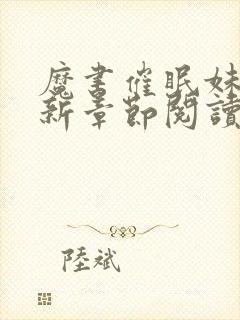 魔書催眠妹
新章節閱讀
陸斌